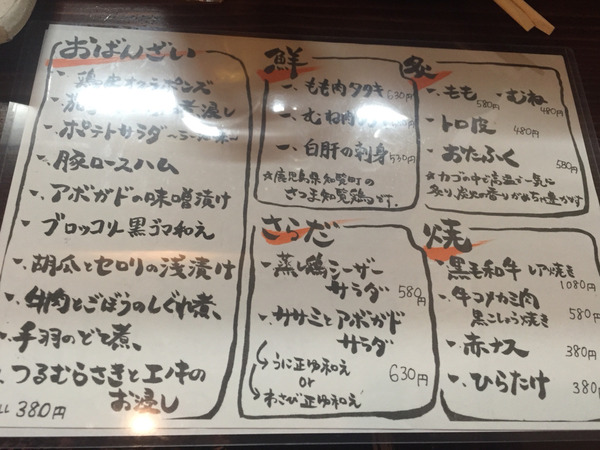 おばんざい
ポテトサラダ
豚ロースハム
アボガドの味噌漬け
ブロッコリー黒ゴマ和え
胡瓜とセロリの浅漬け
牛肉とごぼうのしぐれ煮
手羽のどて煮
つるむらさきとエノキの
お浸し
ALL 380円
鮮
一、もも肉タタキ 630円
一、むね肉
一、白肝の刺身 530円
☆鹿児島県知覧町の
さつま知覧鶏です。
さらだ
一、蒸し鶏シーザー
サラダ 580円
一、ササミとアボガド
サラダ
うに正ゆ和え
or 630円
わさび正ゆ和え
炙
もも 580円 むね 480円
トロ皮 480円
おたふく 580円
☆カゴの中で高温で一気に
炙り、炭火の香りがめちゃ豊かです
焼
黒毛和牛 レア焼き
1080円
牛コメカミ肉
黒こしょう焼き 580円
赤ナス 380円
ひらたけ 380円